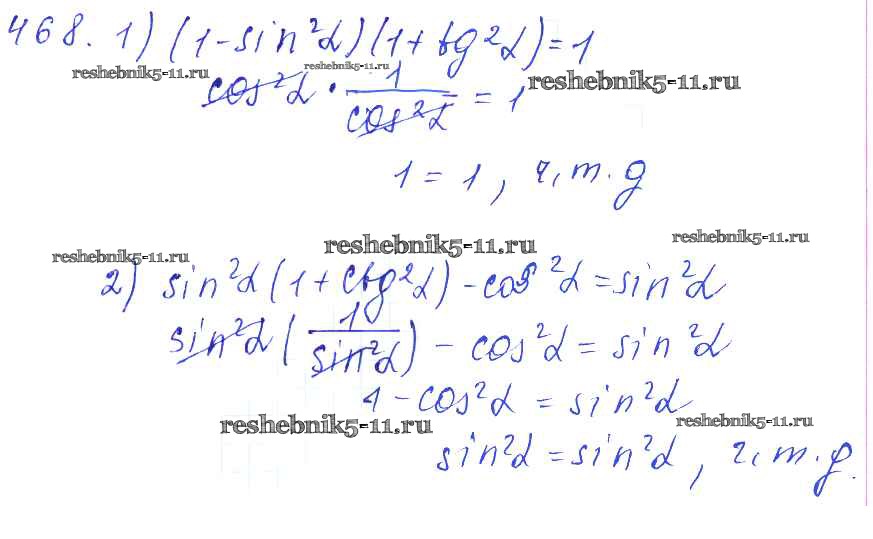 468. 1) (1 - sin²α)(1 + tg²α) = 1
reshebnik5-11.ru reshebnik5-11.ru reshebnik5-11.ru
cos²α · 1/cos²α = 1
1 = 1, ч, т. д
reshebnik5-11.ru reshebnik5-11.ru
reshebnik5-11.ru
2) sin²α (1 + ctg²α) - cos²α = sin²α
sin²α (1/sin²α) - cos²α = sin²α
1 - cos²α = sin²α
reshebnik5-11.ru reshebnik5-11.ru
sin²α = sin²α, ч, т. д.